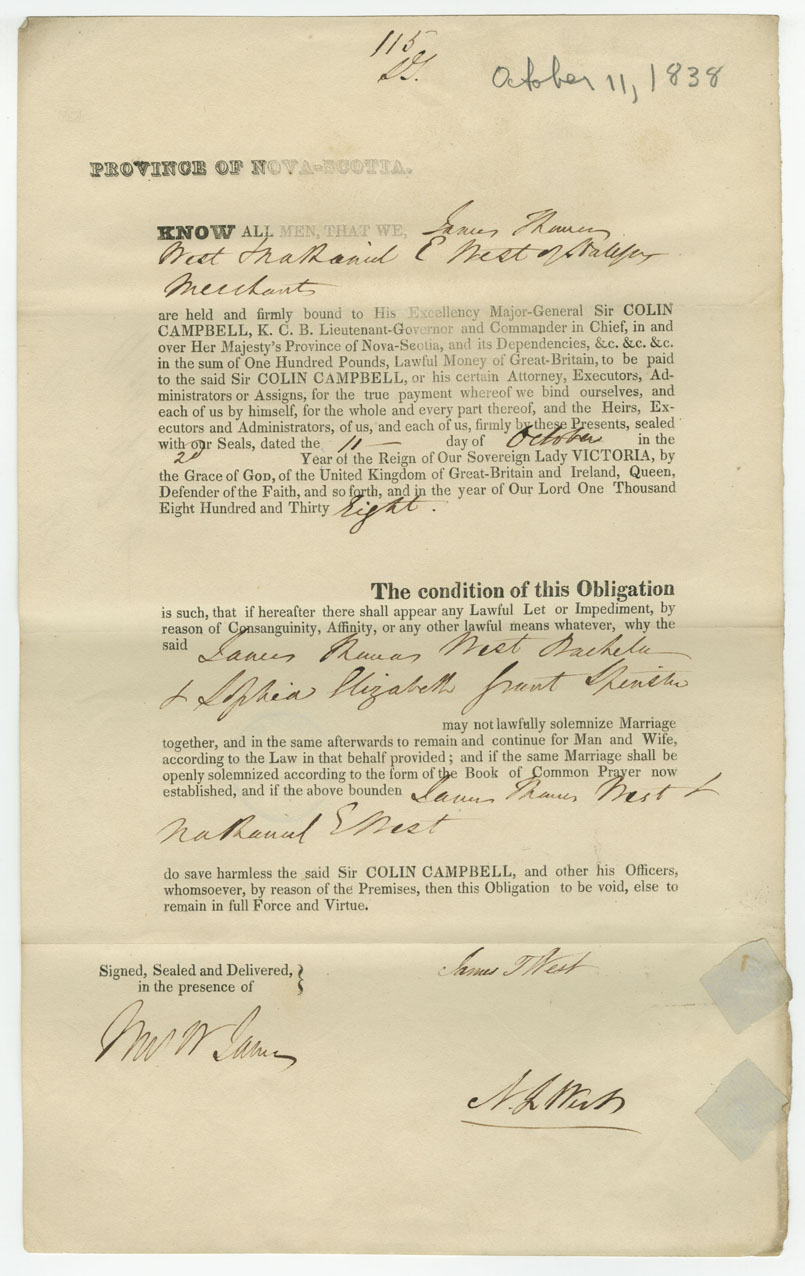 115
October 11, 1838
PROVINCE OF NOVA-SCOTIA.
KNOW ALL MEN, THAT WE, James Thomas
West & Nathaniel E West of Halifax
Merchants
are held and firmly bound to His Excellency Major-General Sir COLIN
CAMPBELL, K. C. B. Lieutenant-Governor and Commander in Chief, in and
over Her Majesty's Province of Nova-Scotia, and its Dependencies, &c. &c. &c.
in the sum of One Hundred Pounds, Lawful Money of Great-Britain, to be paid
to the said Sir COLIN CAMPBELL, or his certain Attorney, Executors, Ad-
ministrators or Assigns, for the true payment whereof we bind ourselves, and
each of us by himself, for the whole and every part thereof, and the Heirs, Ex-
ecutors and Administrators, of us, and each of us, firmly by these Presents, sealed
with our Seals, dated the 11 — day of October in the
2d Year of the Reign of Our Sovereign Lady VICTORIA, by
the Grace of GOD, of the United Kingdom of Great-Britain and Ireland, Queen,
Defender of the Faith, and so forth, and in the year of Our Lord One Thousand
Eight Hundred and Thirty Eight.
The condition of this Obligation
is such, that if hereafter there shall appear any Lawful Let or Impediment, by
reason of Consanguinity, Affinity, or any other lawful means whatever, why the
said James Thomas West Bachelor
& Sophia Elizabeth Grant Spinster
may not lawfully solemnize Marriage
together, and in the same afterwards to remain and continue for Man and Wife,
according to the Law in that behalf provided; and if the same Marriage shall be
openly solemnized according to the form of the Book of Common Prayer now
established, and if the above bounden James Thomas West &
Nathaniel E West
do save harmless the said Sir COLIN CAMPBELL, and other his Officers,
whomsoever, by reason of the Premises, then this Obligation to be void, else to
remain in full Force and Virtue.
Signed, Sealed and Delivered,
in the presence of
James T West
W James
West